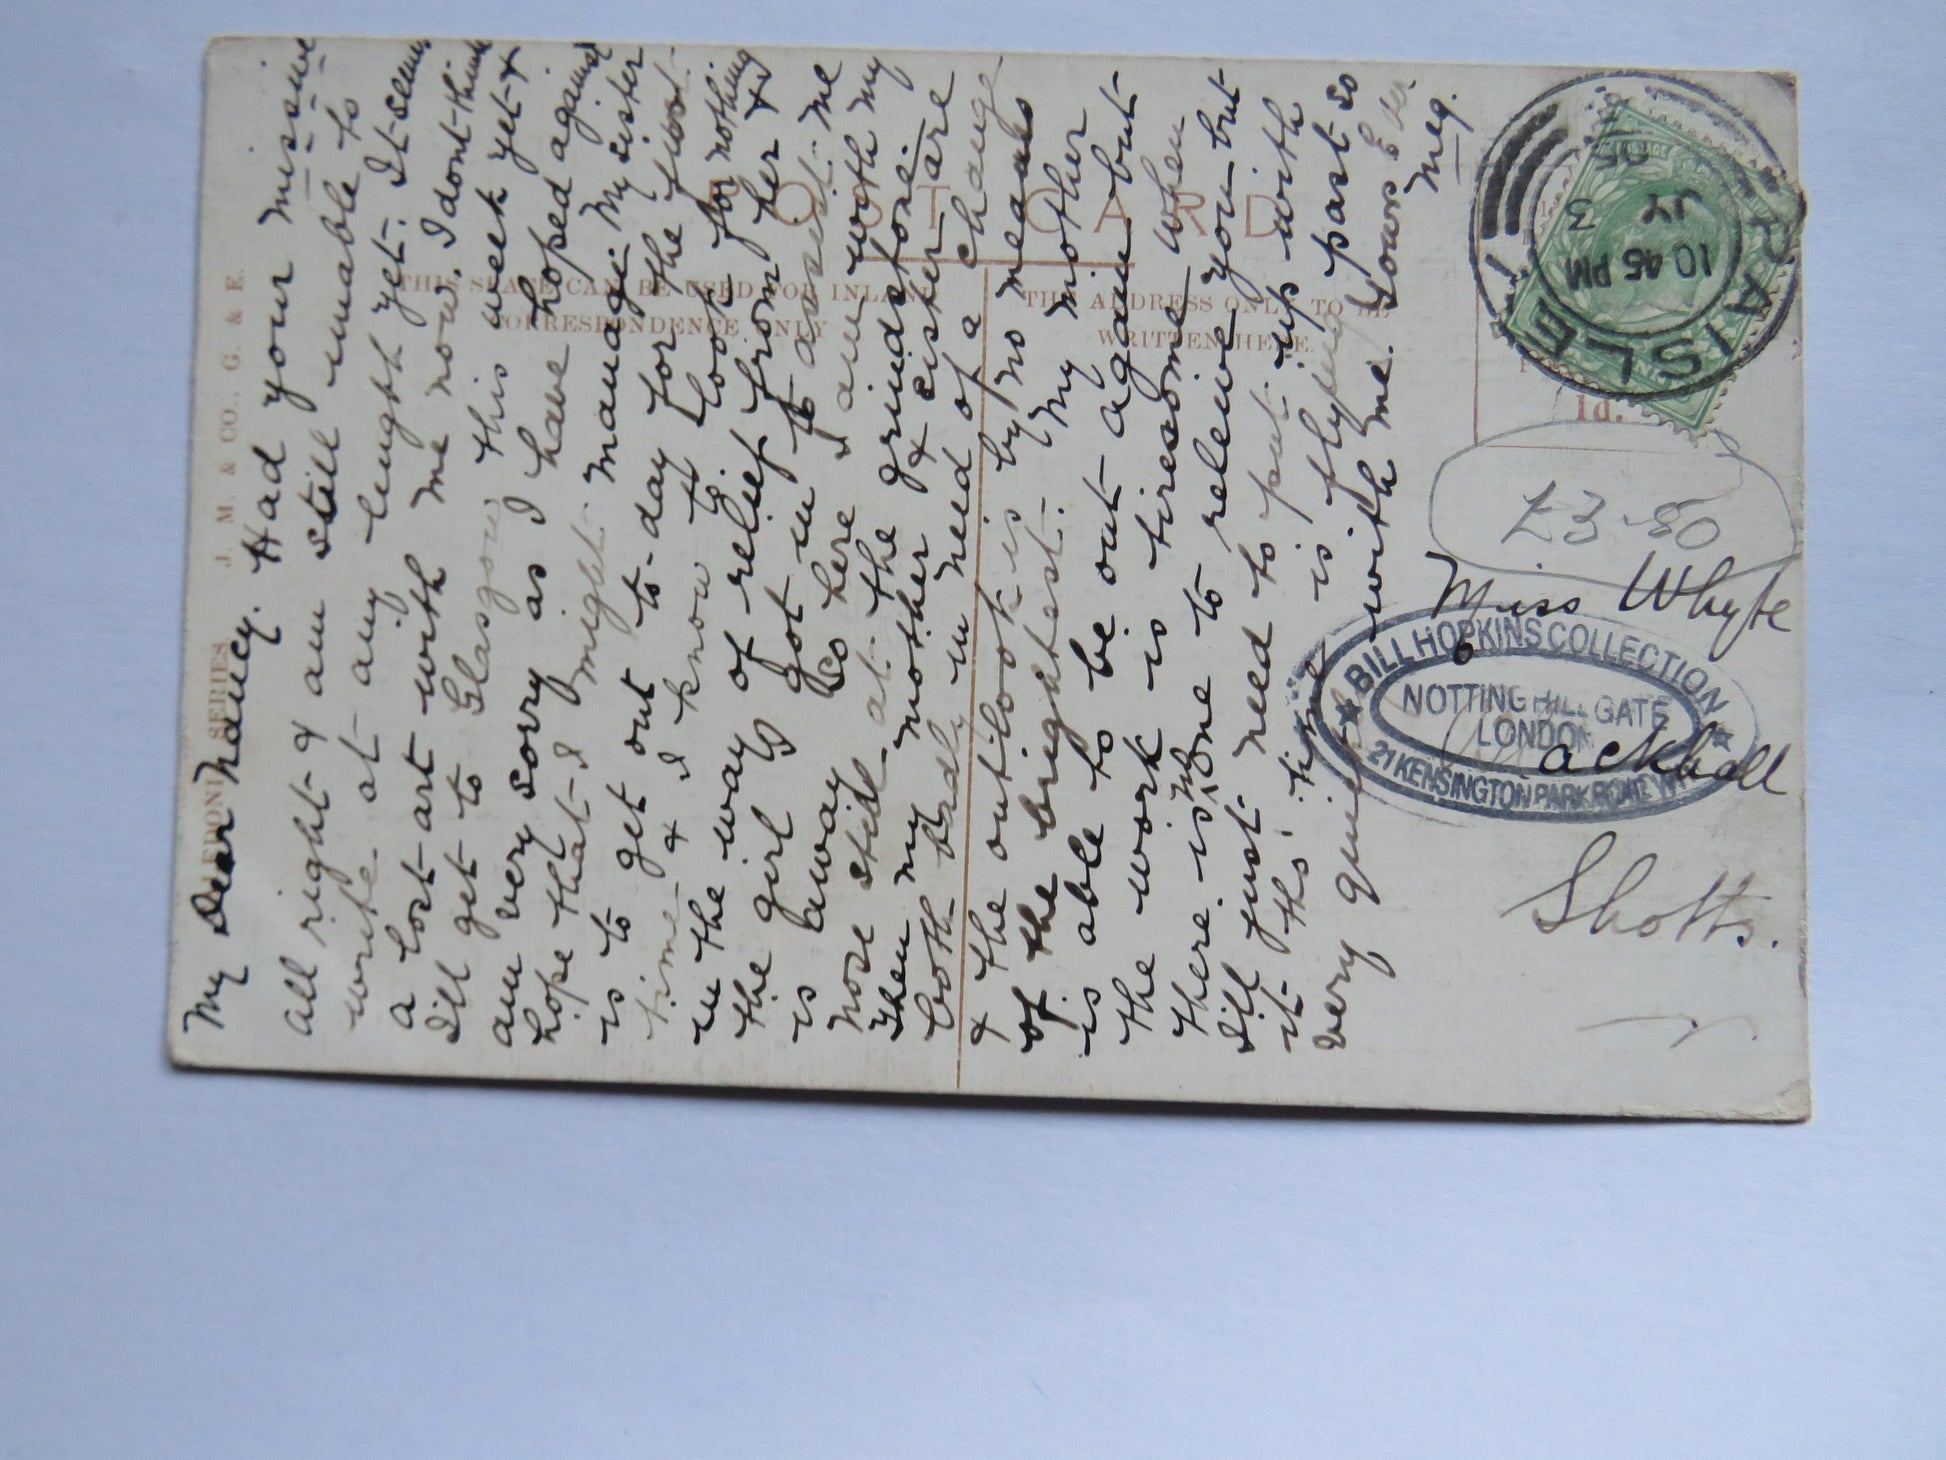 My Dear Nancy. Had your missive
all right & am still unable to
write at any length yet. It seems
a lost art with me now. I dont think
I'll get to Glasgow this week yet &
am very sorry as I have hoped against
hope that I might manage. My sister
is to get out to-day for the first
time & I know to look for nothing
in the way of relief from her &
the girl got in to assist me
is away so here I am with my
nose still at the grindstone.
Then my mother & sister are
both badly in need of a change
& the outlook is by no means
of the brightest. My mother
is able to be out again but
the work is tiresome when
there is no one to relieve you but
I'll just need to put up with
it tho' time is flying past so
very quickly with me. Yours
Meg.
POST CARD
THIS SPACE CAN BE USED FOR INLAND
CORRESPONDENCE ONLY
THE ADDRESS ONLY TO BE
WRITTEN HERE
CALEDONIA SERIES J. M. & CO., G. & E.
1d.
PAISLEY
10 45 PM
JY 3
£3-80
Miss Whyte
6
ackhall
Shotts.
BILL HOPKINS COLLECTION
NOTTING HILL GATE
LONDON
21 KENSINGTON PARK ROAD W11